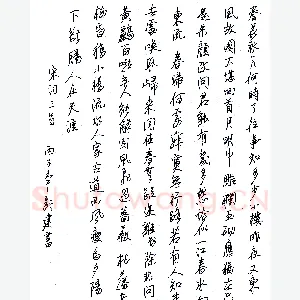 春花秋月何時了往事知多少小樓昨夜又東
風故國不堪回首月明中雕闌玉砌應猶在只
是朱顏改問君能有幾多愁恰似一江春水向
東流 春歸何處寂寞無行路若有人知春
去處喚取歸來同住春無蹤跡誰知除非問取
黃鸝百囀無人能解因風飛過薔薇 枯藤老
樹昏鴉小橋流水人家古道西風瘦馬夕陽
下斷腸人在天涯
宋詞三首 丙子冬 建書